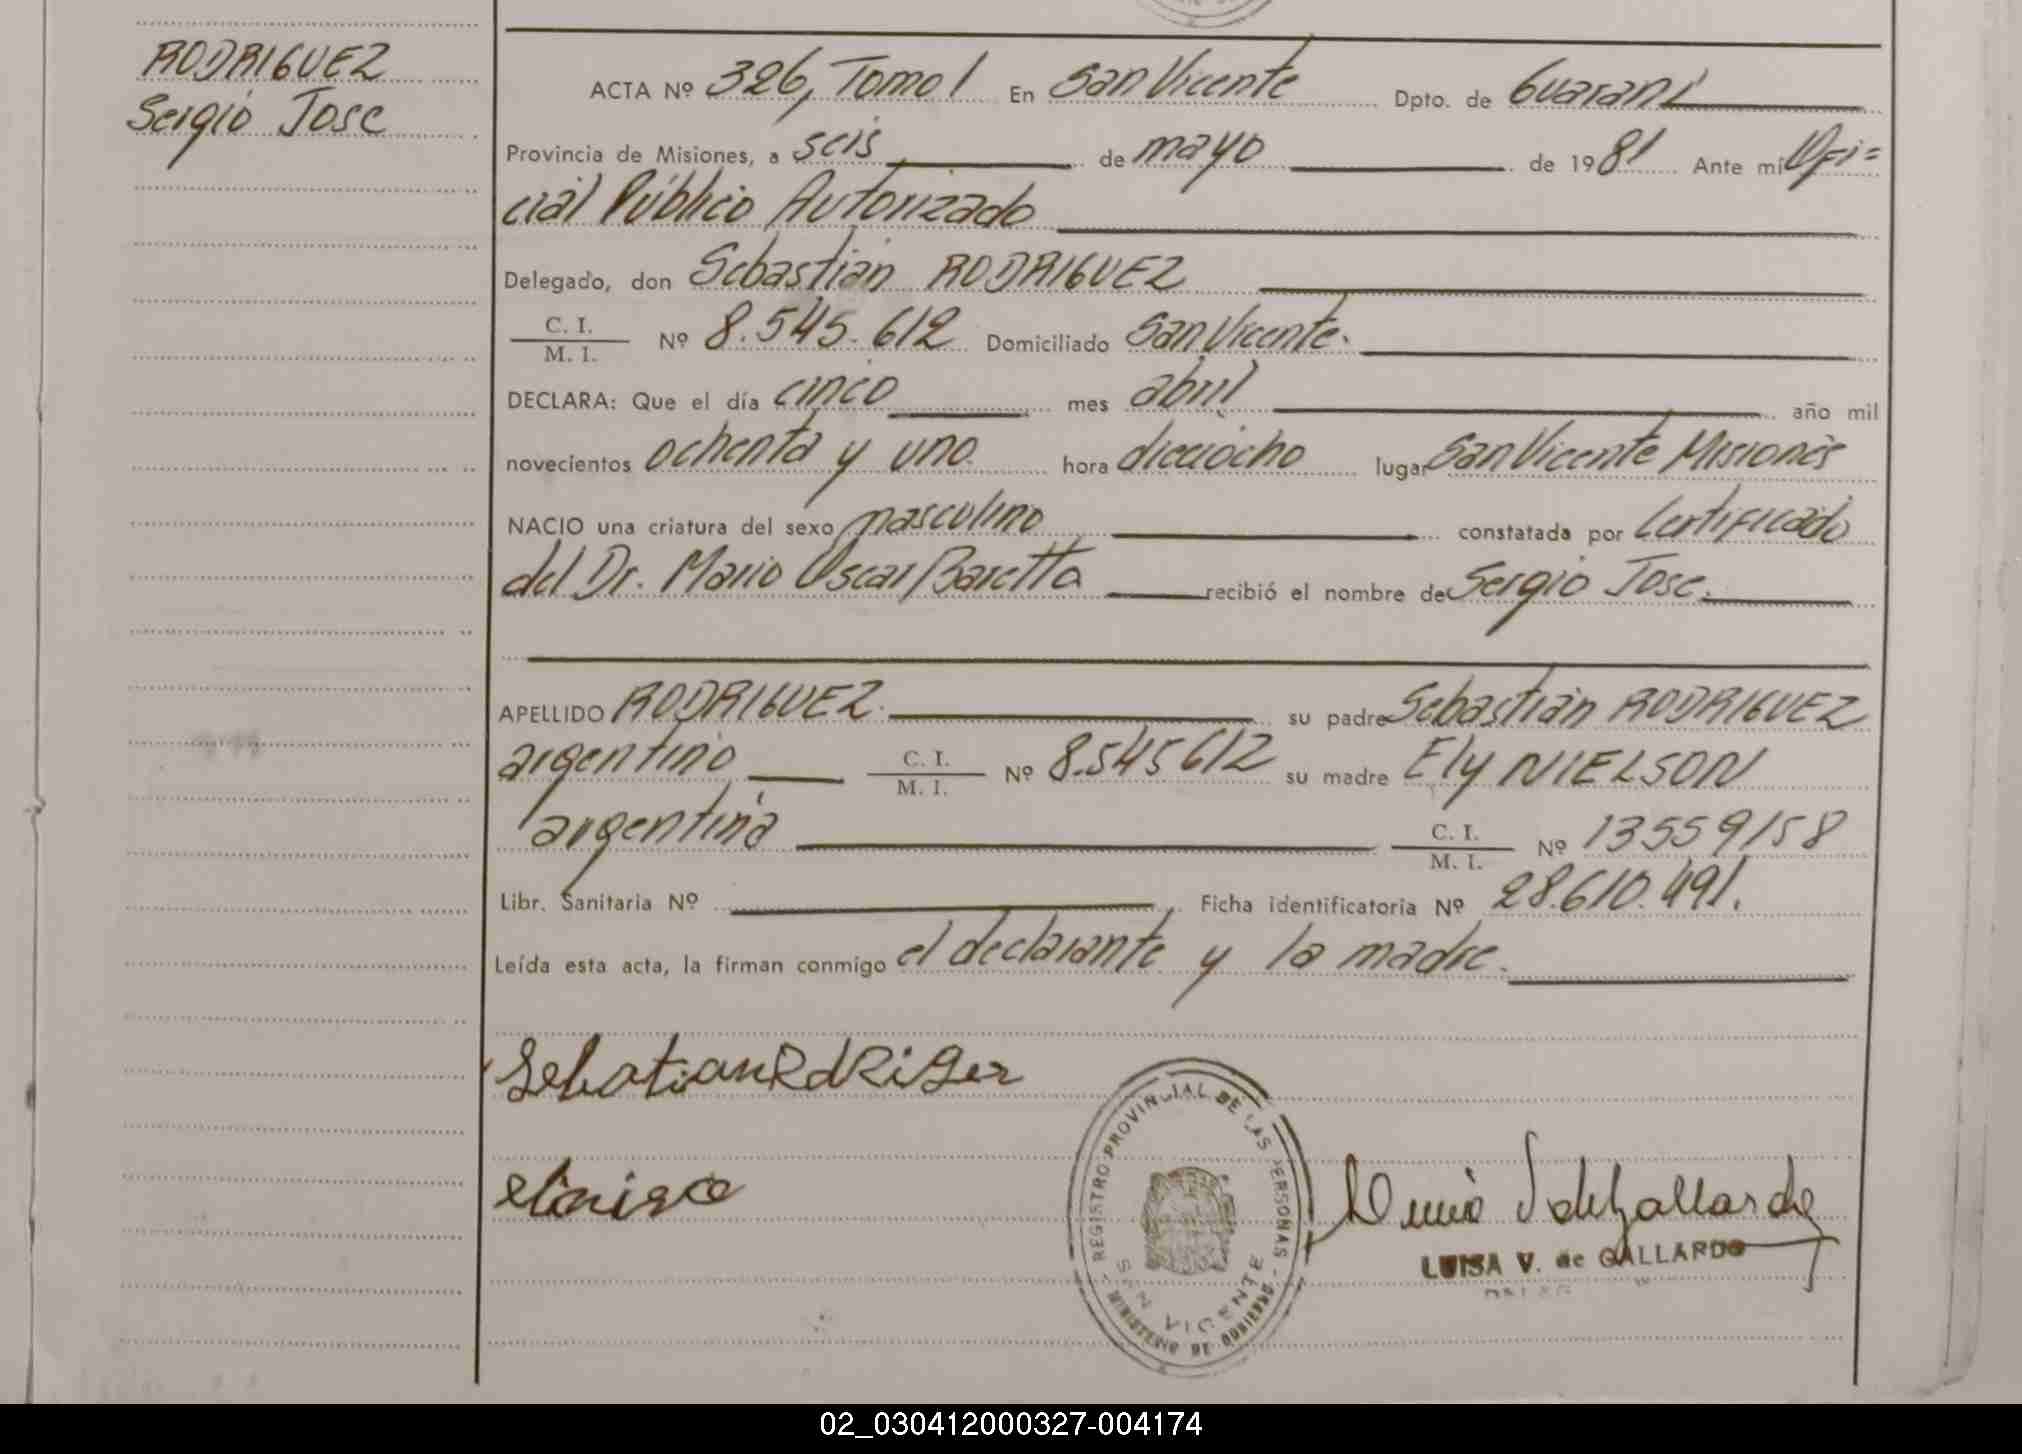 RODRIGUEZ
Sergio Jose
ACTA Nº 326, Tomo I En San Vicente Dpto. de Guaraní
Provincia de Misiones, a seis de mayo de 1981 Ante mi Ofi=
cial Público Autorizado
Delegado, don Sebastián RODRIGUEZ
C. I.
M. I. Nº 8.545.612 Domiciliado San Vicente.
DECLARA: Que el día cinco mes abril año mil
novecientos ochenta y uno hora dieciocho lugar San Vicente Misiones
NACIO una criatura del sexo masculino constatada por Certificado
del Dr. Mario Oscar Baretta recibió el nombre de Sergio Jose.
APELLIDO RODRIGUEZ. su padre Sebastián RODRIGUEZ
argentino C. I.
M. I. Nº 8.545612 su madre Ely NIELSON
argentina C. I.
M. I. Nº 13559158
Libr. Sanitaria Nº Ficha identificatoria Nº 28.610.491.
Leída esta acta, la firman conmigo el declarante y la madre.
REGISTRO PROVINCIAL DE LAS PERSONAS - MINISTERIO DE GOBIERNO
SAN VICENTE
LUISA V. de GALLARDO
02_030412000327-004174